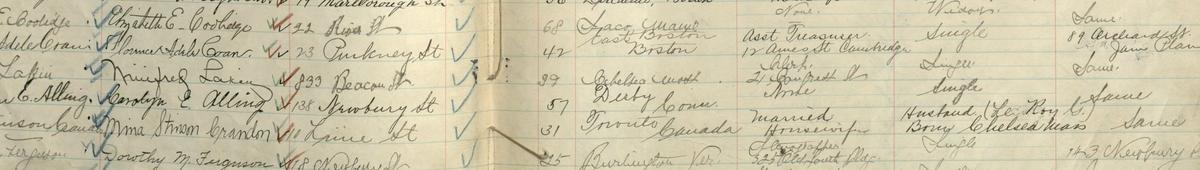 19 Marlborough St 56 None. Widow
E. Coolidge Elizabeth E. Coolidge 22 River St 68 Saco Maine Same.
Adele Coan Florence Adele Coan 23 Pinckney St 42 East Boston Asst Treasurer Single 89 Orchard St
Boston 12 Ames St Cambridge Jam Plain
Lakin Winifred Lakin 833 Beacon St 39 Chelsea Mass Single Same.
E. Alling. Carolyn E. Alling 138 Newbury St 57 Derby Conn. None Single Same
Nina Stinson Crandon 10 Lime St 31 Toronto Canada Married Housewife Husband, (Le Roy G.) Born Chelsea Mass Same
Ferguson Dorothy M. Ferguson 18 Newbury St 25 Burlington Ver. Single 143 Newbury